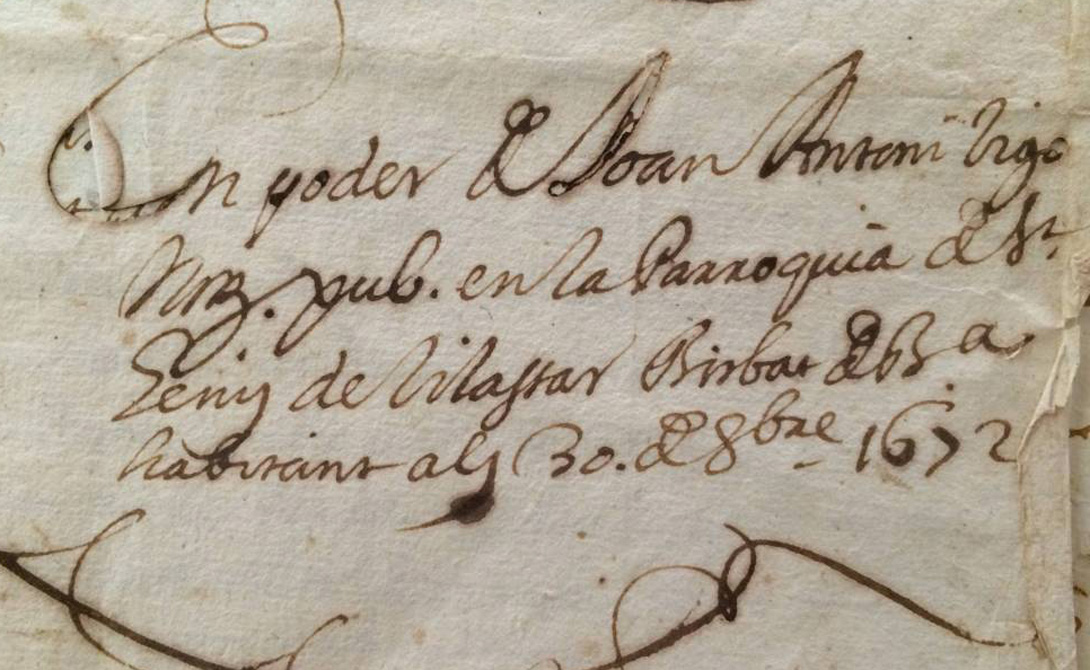 En poder de Joan Antoni Vigo
Not. pub. en la Parroquia de St.
Geniş de Vilassar Bisbat de Bar.a
habitant als 30. de 8bre 1672